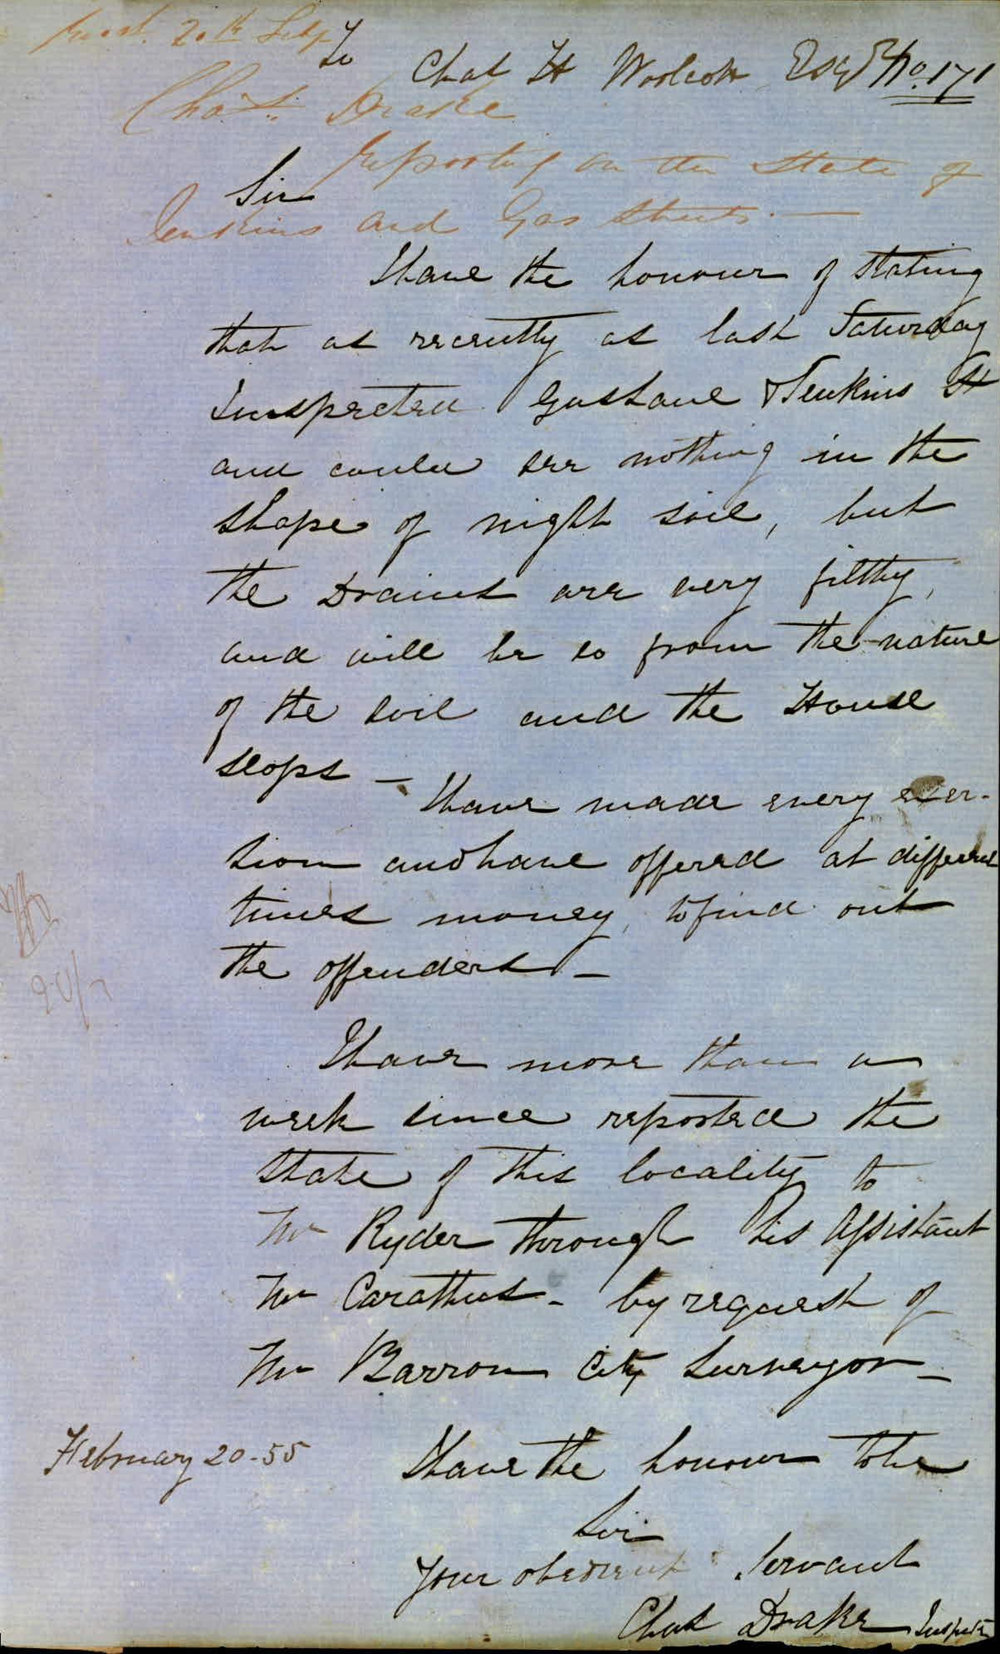 Recd. 20th Feby
To Chas H Woolcott Esqr No. 171
Chas. Drake
reporting on the state of
Sir
Jenkins and Gas Streets. —
I have the honour of stating
that as recently as last Saturday
Inspected Gashane & Jenkins St
and could see nothing in the
shape of night soil, but
the Drains are very filthy,
and will be so from the nature
of the soil and the House
slops —
I have made every exer-
tion and have offered at different
times money, to find out
the offenders —
I have more than a
week since reported the
state of this locality to
Mr Ryder through his Assistant
Mr Carathus - by request of
Mr Barrow City Surveyor —
February 20 - 55
I have the honour to be
Sir
Your obedient Servant
Chas Drake Inspectr